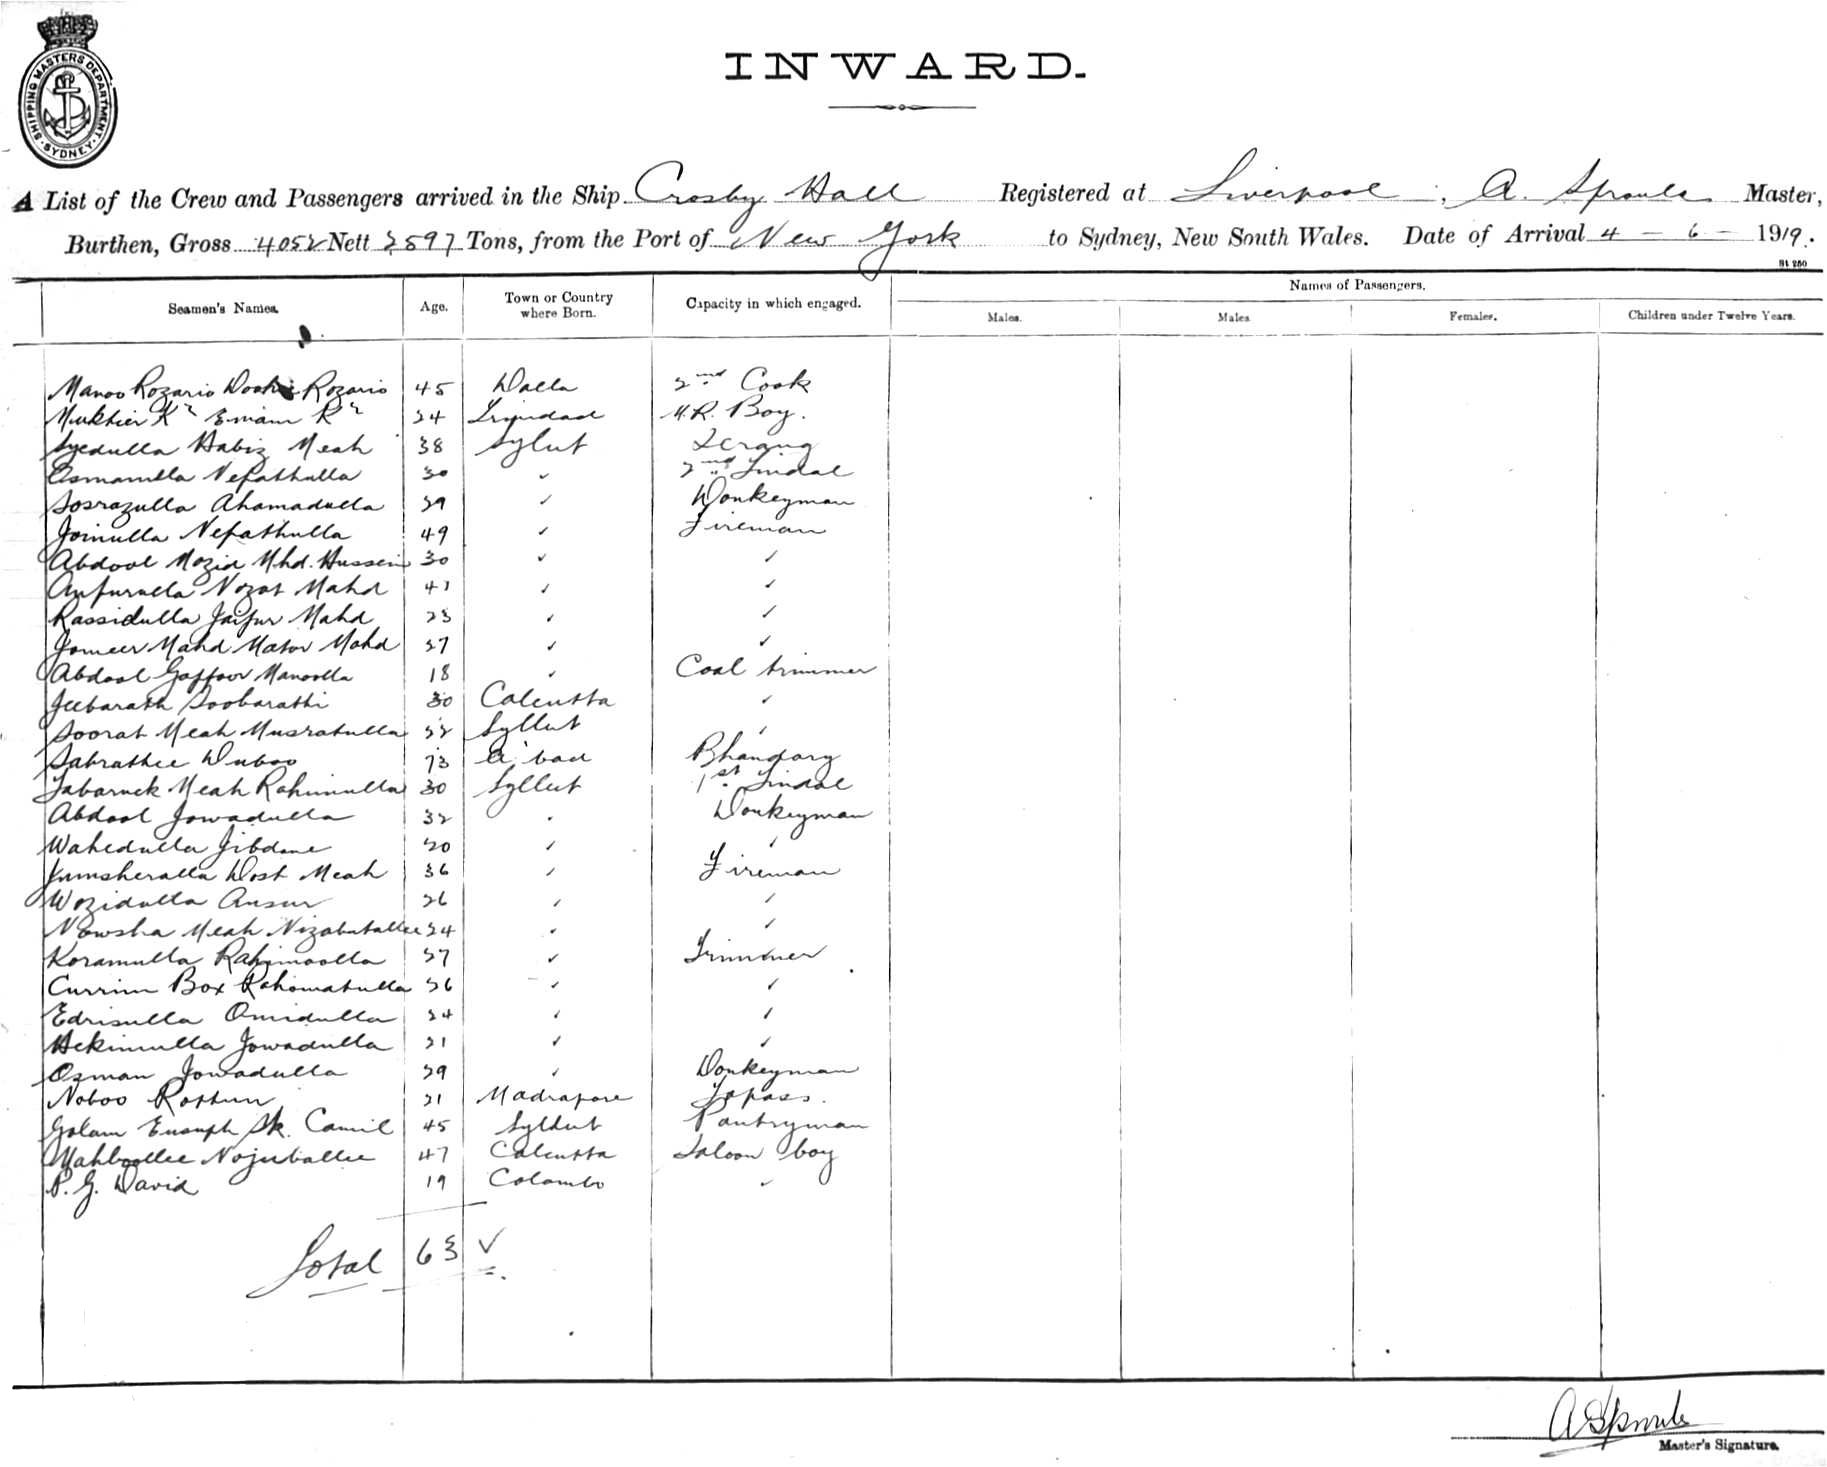 SHIPPING MASTERS DEPARTMENT. SYDNEY.
INWARD.
A List of the Crew and Passengers arrived in the Ship Crosby Hall Registered at Liverpool, A. Sproule Master,
Burthen, Gross 4052 Nett 2597 Tons, from the Port of New York to Sydney, New South Wales. Date of Arrival 4 - 6 - 1919.
St 250
Seamen's Names. Age. Town or Country where Born. Capacity in which engaged. Names of Passengers.
Males. Males. Females. Children under Twelve Years.
Manoo Rozario Rozario 45 Dacca 2nd Cook
Mukhier Kr Emam Kr 24 Trinidad M.R. Boy.
Syedulla Habiz Meah 38 Sylut Serang
Asmamulla Nefathulla 30 ✓ 2nd Tindal
Sosrazulla Ahamadulla 29 ✓ Donkeyman
Joinulla Nefathulla 49 ✓ Fireman
Abdool Mozid Mhd. Hussein 30 ✓ ✓
Anfurulla Nozat Mahd 41 ✓ ✓
Rassidulla Jaifur Mahd 23 ✓ ✓
Jomeer Mahd Mator Mahd 27 ✓ ✓
Abdool Gaffoor Manoolla 18 ✓ Coal trimmer
Jeebarath Soobarathi 30 Calcutta ✓
Soorat Meah Musratulla 22 Syllut ✓
Sabrathee Duboo bad Bhandary
Tabaruck Meah Rahimulla 30 Syllut 1st Tindal
Abdool Jowadulla 32 Donkeyman
Wahedulla Jibdane 20 ✓ ✓
Jumsheralla Dost Meah 36 ✓ Fireman
Wozidulla Ansur 26 ✓ ✓
Nowsha Meah Nizabutallee 24 ✓ ✓
Koramulla Rahimoolla 27 ✓ Trimmer
Currim Box Rahomatulla 26 ✓ ✓
Edrisulla Omidulla 24 ✓ ✓
Hekimulla Jowadulla 21 ✓ ✓
Osman Jowadulla 29 ✓ Donkeyman
Noboo Rottun 21 Madrapore Topass.
Golam Eusuph Sk. Camil 45 Sylhut Pantryman
Mahboollee Nojuballee 47 Calcutta Saloon boy
P. G. David 19 Colombo ✓
Total 63 ✓
A Sproule
Master's Signature.